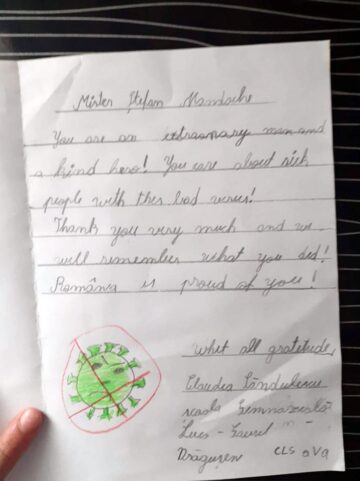 Mister Ștefan Mandache
You are an extraonary man and
a kind hero! You care about sick
people with this bad verus!
Thank you very much and we
will remember what you did!
România is proud of you!
Whit all gratitude,
Claudia
Școala Gimnazială
Liceo
CLS a V a